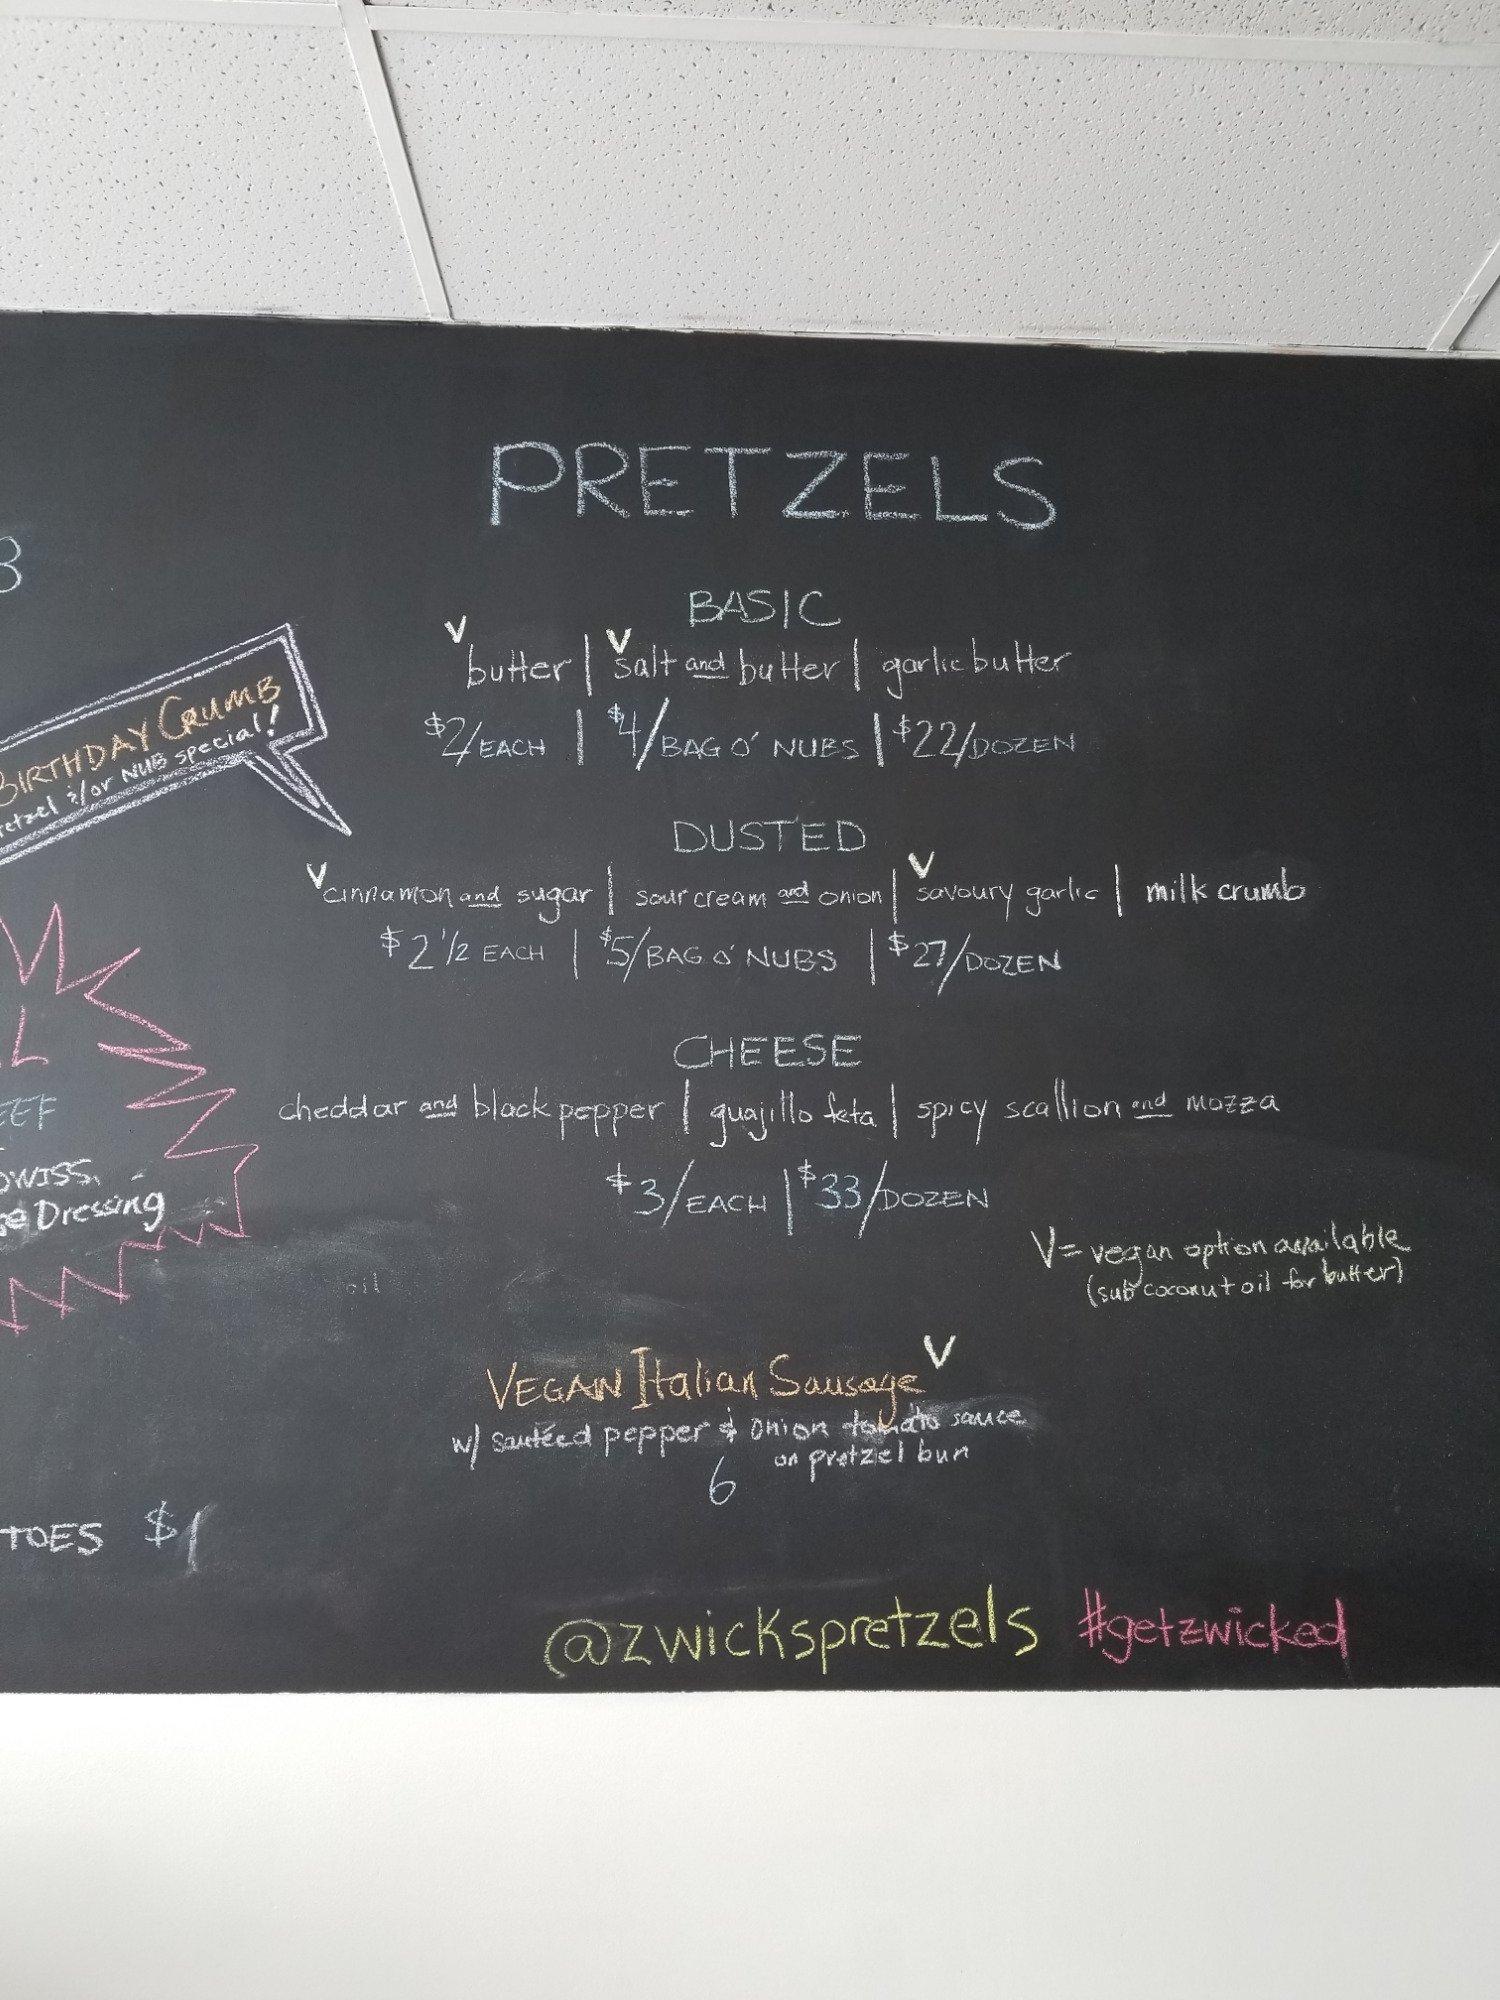 PRETZELS
BASIC
V butter | V salt and butter | garlic butter
$2/EACH | $4/BAG O' NUBS | $22/DOZEN
DUSTED
V cinnamon and sugar | sour cream and onion | V savoury garlic | milk crumb
$2 1/2 EACH | $5/BAG O' NUBS | $27/DOZEN
CHEESE
cheddar and black pepper | guajillo feta | spicy scallion and mozza
$3/EACH | $33/DOZEN
V = vegan option available
(sub coconut oil for butter)
oil
VEGAN Italian Sausage V
w/ sautéed pepper & onion tomato sauce
on pretzel bun
6
@zwickspretzels #getzwicked
BIRTHDAY CRUMB
retzel &/or NUB special!
EEF
SWISS,
Dressing
TOES $1